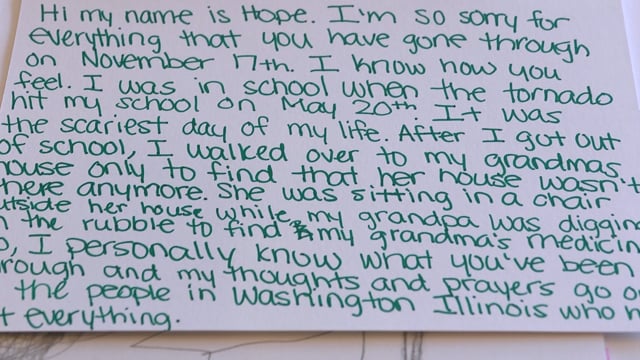 Hi my name is Hope. I'm so sorry for
everything that you have gone through
on November 17th. I know how you
feel. I was in school when the tornado
hit my school on May 20th. It was
the scariest day of my life. After I got out
of school, I walked over to my grandmas
house only to find that her house wasn't
there anymore. She was sitting in a chair
utside her house while my grandpa was diggin
n the rubble to find my grandma's medicin
o, I personally know what you've been
rough and my thoughts and prayers go o
the people in Washington Illinois who
t everything.